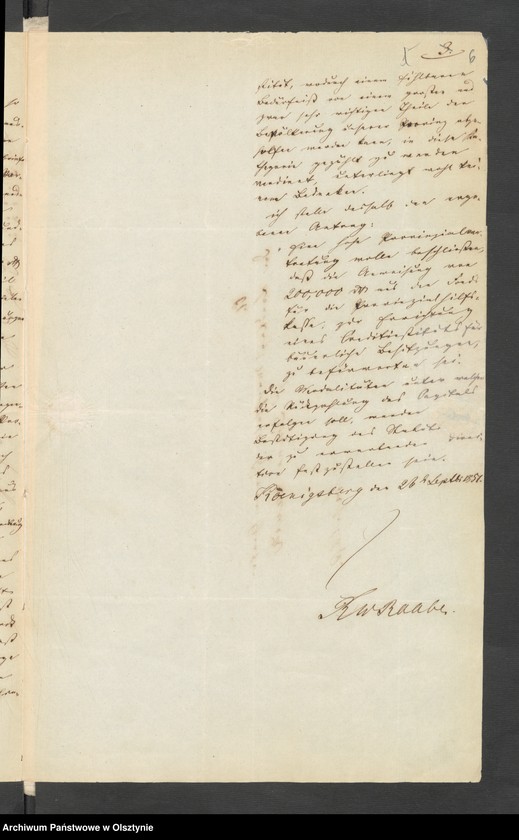 3. 6
stitut, wodurch einem fühlbaren
Bedürfniß von einem großen und
zwar sehr wichtigen Theile der
Bevölkerung unserer Provinz abge-
holfen werden kann, in diese Ka-
thegorie gezählt zu werden
verdient, unterliegt wohl kei-
nem Bedenken.
Ich stelle deshalb den erge-
benen Antrag:
Eine hohe Provinzialver-
tretung wolle beschließen,
daß die Anweisung von
200,000 aus den Fonds
für die Provinzialhilfs-
kasse, zur Errichtung
eines Creditinstituts für
bäuerliche Besitzungen,
zu befürworten sei.
Die Modalitäten unter welchen
die Rückzahlung des Capitals
erfolgen soll, werden
Bestätigung des Statuts
der zu erwartenden
festzustellen sein.
Koenigsberg den 26t Septbr 1851.
Raabe.
Archiwum Państwowe w Olsztynie